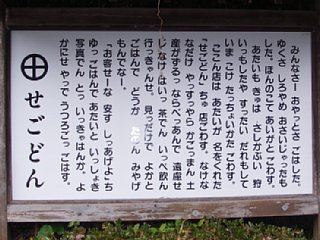 みんなさー おやっとさぁ ごはした。
ゆくさ しろやめ おさいじゃったもした。 ほんのこて あいがと ごわす。
あたいも きゅは さしかぶい 狩 いっもしたや すったい だれもして
いま こけ たっちょいかた ごわす。
ここん店は あたいが 名をくれた
「せごどん」ちゅ 店ごわす。 なけな
なだけ やっすっやら かごっまん 土
産がずるっ ならべっあんで 遠慮せ
じなけ はいっ 茶でん いっぺ飲ん
行っきゃんせ。 見っだけで よかと
ごわんで どうか みやげ
もんでなー。
「お客せーな 安す しっあげよ」ち
ゆっ ごはんで あたいと いっしょき
写真でん とっ いっきゃはんか。 よ
かにせ やっで うつろごっ ごはす。
せごどん